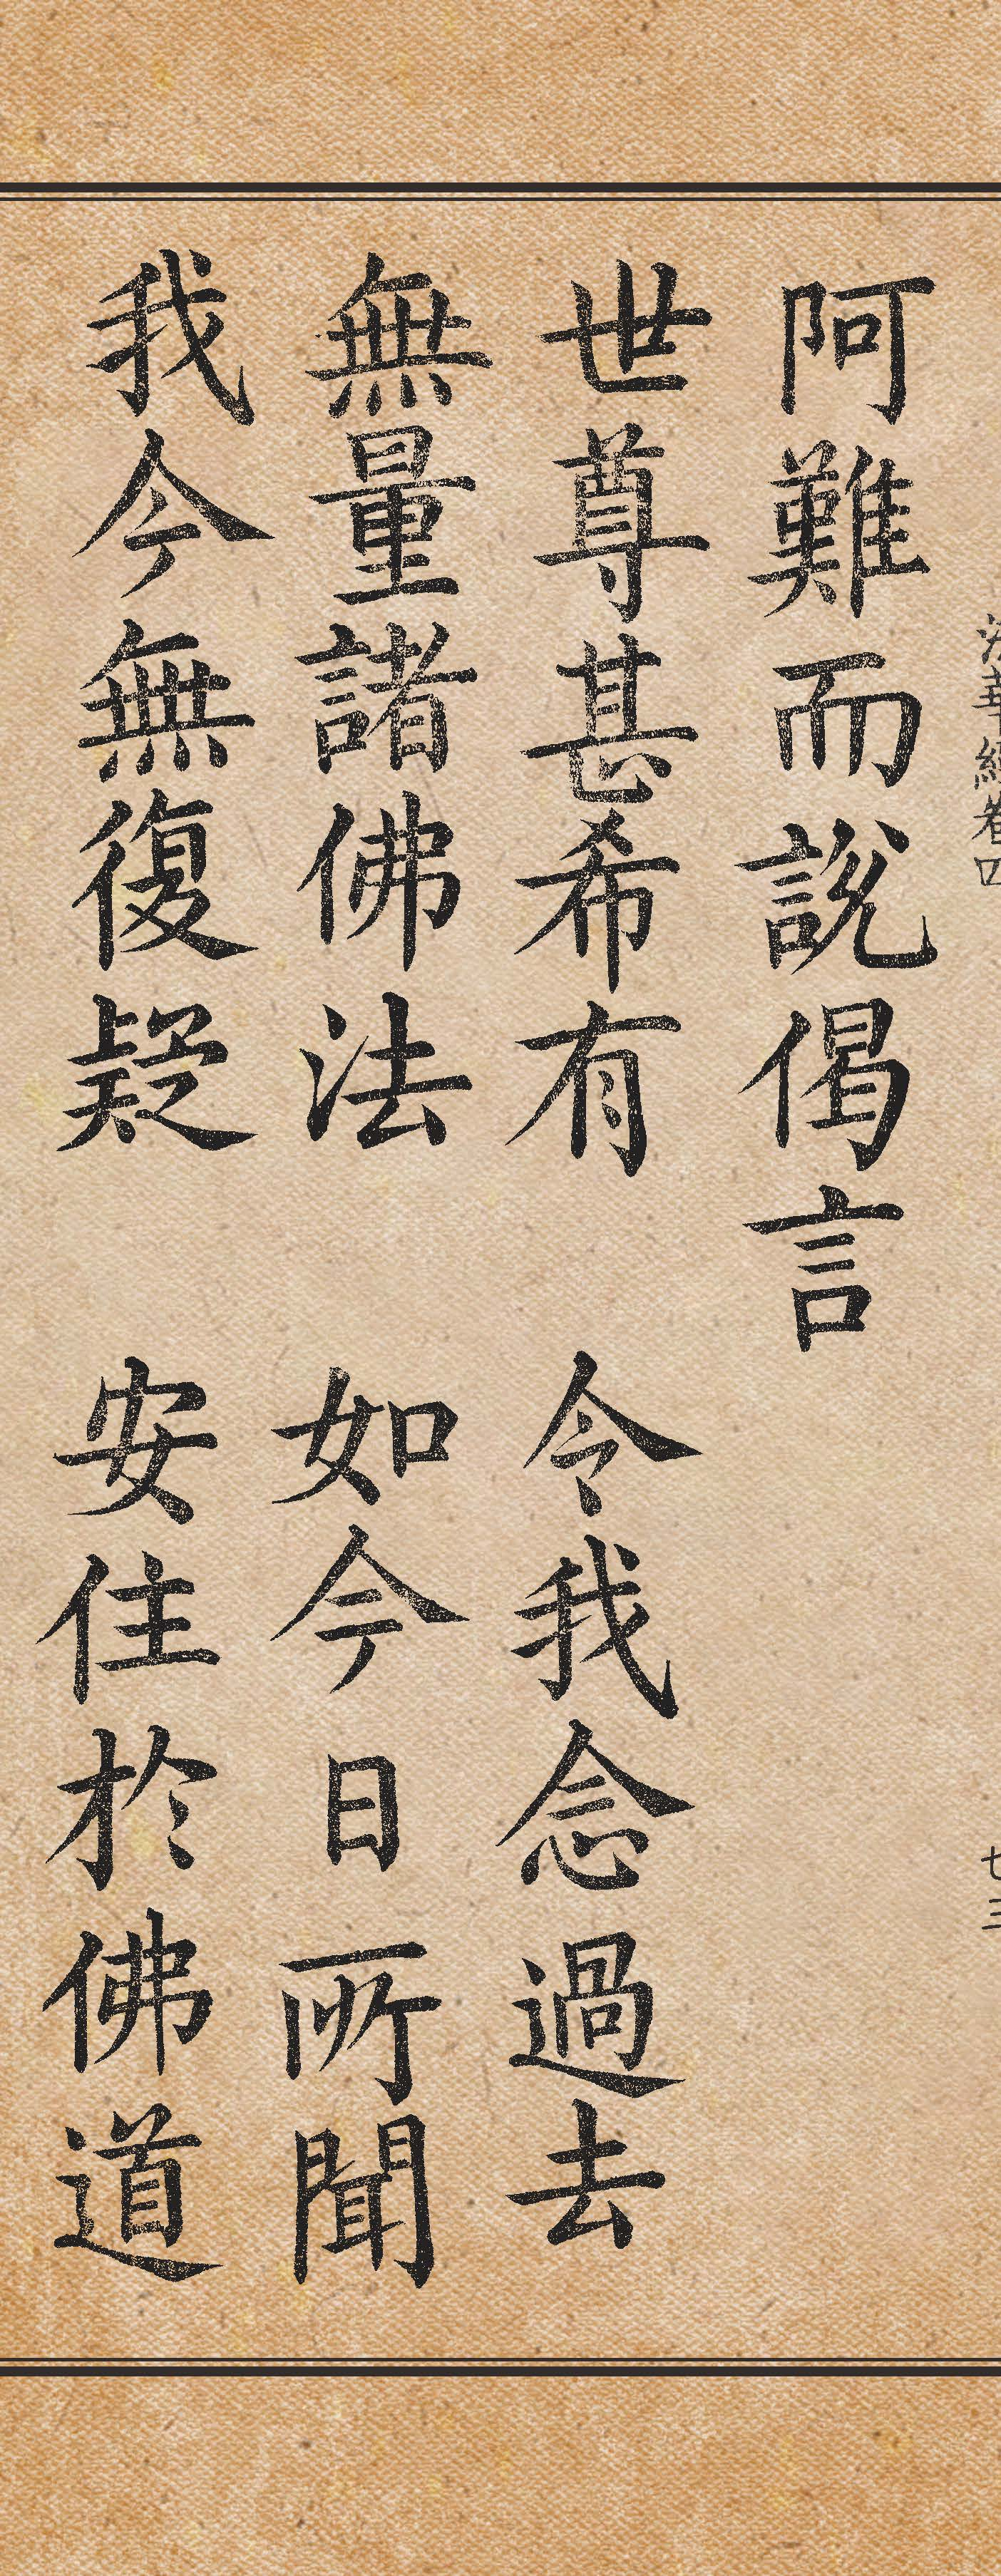 法華經卷四 七三
阿難而說偈言
世尊甚希有 令我念過去
無量諸佛法 如今日所聞
我今無復疑 安住於佛道